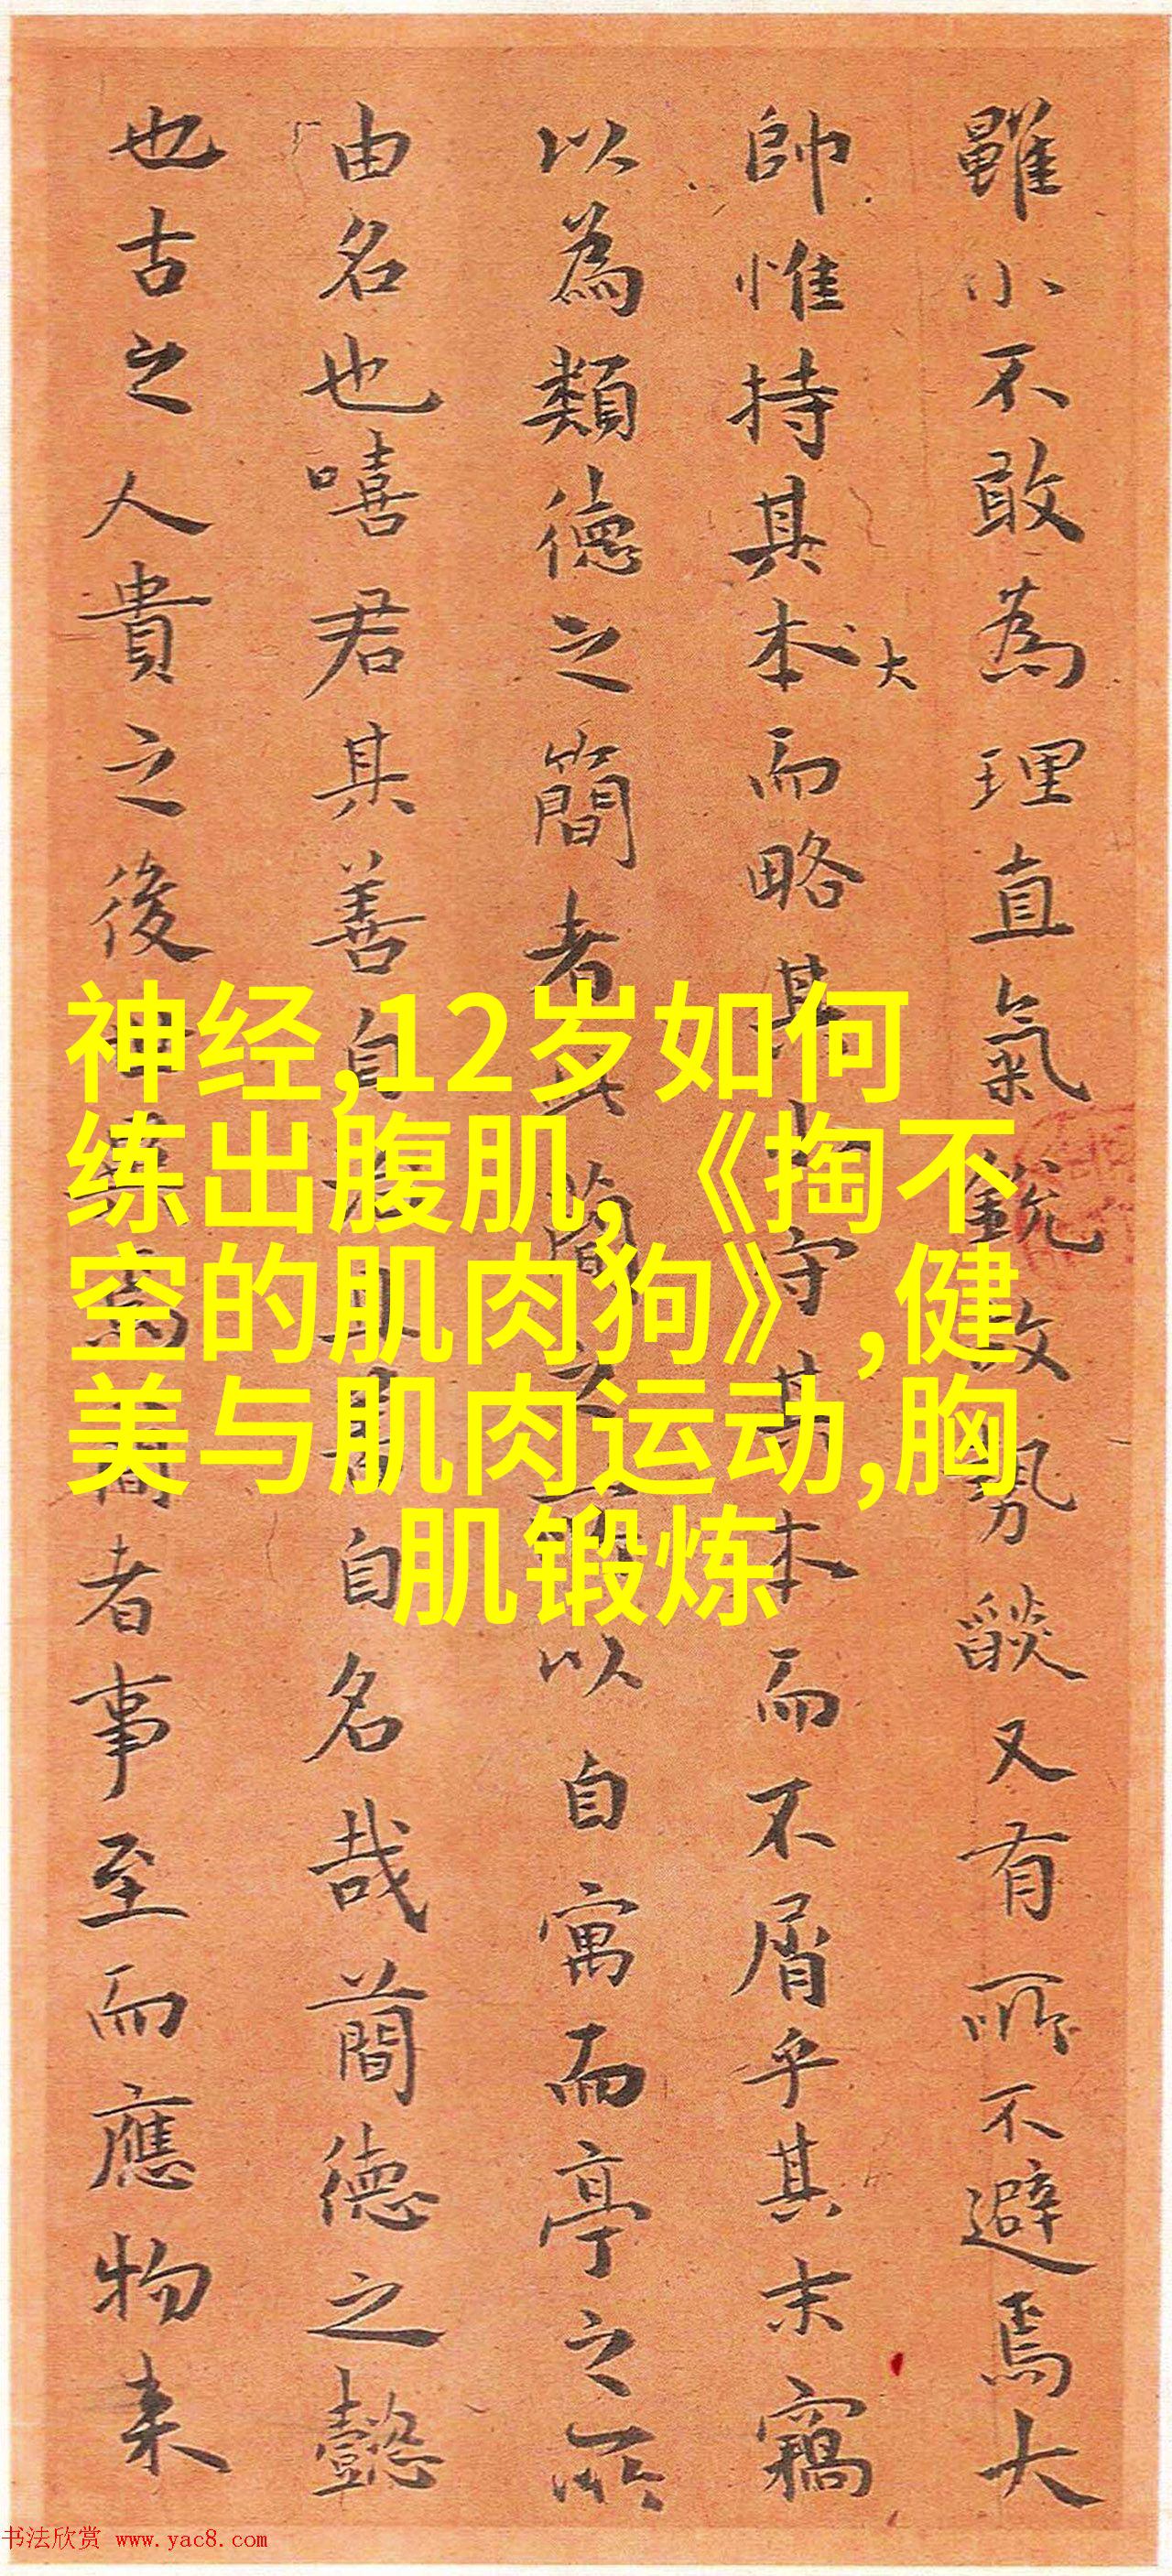 雖小不敢為理直氣銳故勢燄又有所不避焉大
帥惟持其本大而略其小守其本而不屑乎其末竊
以為類德之簡者其簡之以自寓而亭之所
由名也嘻君其善自名哉簡德之懿
也古之人貴之後者事至而應物来
神经,12岁如何
练出腹肌,《掏不
空的肌肉狗》,健
美与肌肉运动,胸
肌锻炼
书法欣赏 www.yac8.com